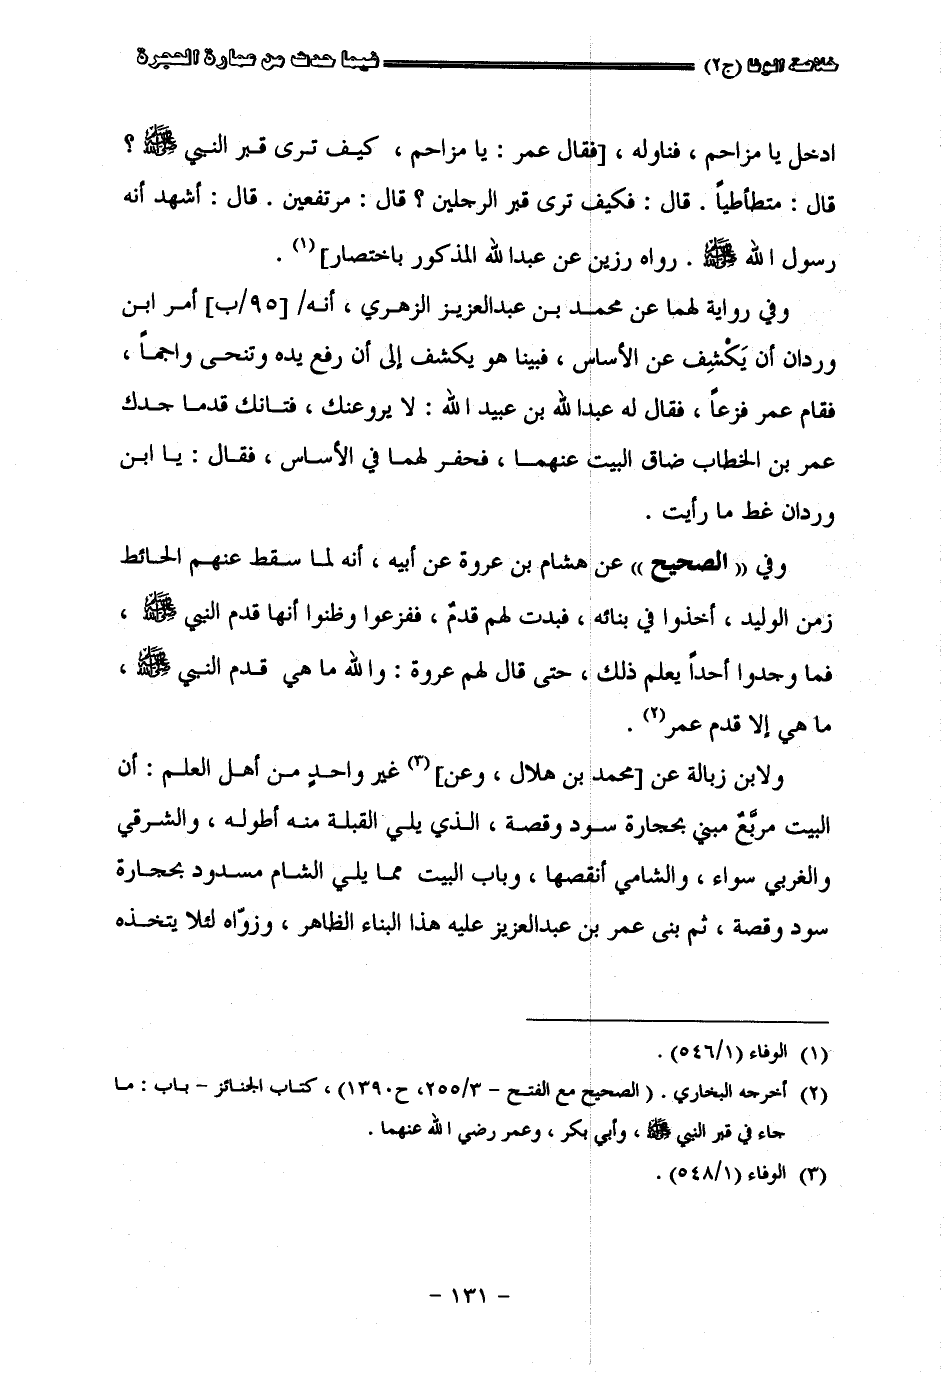 خلاصة الوفا (ج٢) فيما حدث من عمارة الحجرة
ادخل يا مزاحم ، فناوله ، [فقال عمر : يا مزاحم ، كيف ترى قبر النبي ﷺ ؟
قال : متطأطياً . قال : فكيف ترى قبر الرجلين ؟ قال : مرتفعين . قال : أشهد أنه
رسول الله ﷺ . رواه رزين عن عبدالله المذكور باختصار] (١) .
وفي رواية لهما عن محمد بن عبدالعزيز الزهري ، أنه/ [٩٥/ب] أمر ابن
وردان أن يَكْشِف عن الأساس ، فبينا هو يكشف إلى أن رفع يده وتنحى واجماً ،
فقام عمر فزعاً ، فقال له عبدالله بن عبيد الله : لا يروعنك ، فتانك قدما جدك
عمر بن الخطاب ضاق البيت عنهما ، فحفر لهما في الأساس ، فقال : يا ابن
وردان غط ما رأيت .
وفي « الصحيح » عن هشام بن عروة عن أبيه ، أنه لما سقط عنهم الحائط
زمن الوليد ، أخذوا في بنائه ، فبدت لهم قدمٌ ، ففزعوا وظنوا أنها قدم النبي ﷺ ،
فما وجدوا أحداً يعلم ذلك ، حتى قال لهم عروة : والله ما هي قدم النبي ﷺ ،
ما هي إلا قدم عمر(٢) .
ولابن زبالة عن [محمد بن هلال ، وعن] (٣) غير واحدٍ من أهل العلم : أن
البيت مربَّعٌ مبني بحجارة سود وقصة ، الذي يلي القبلة منه أطوله ، والشرقي
والغربي سواء ، والشامي أنقصها ، وباب البيت مما يلي الشام مسدود بحجارة
سود وقصة ، ثم بنى عمر بن عبدالعزيز عليه هذا البناء الظاهر ، وزوّاه لئلا يتخذه
(١) الوفاء (٥٤٦/١) .
(٢) أخرجه البخاري . ( الصحيح مع الفتح – ٢٥٥/٣، ح١٣٩٠) ، كتاب الجنائز – باب : ما
جاء في قبر النبي ﷺ ، وأبي بكر ، وعمر رضي الله عنهما .
(٣) الوفاء (٥٤٨/١) .
- ١٣١ -